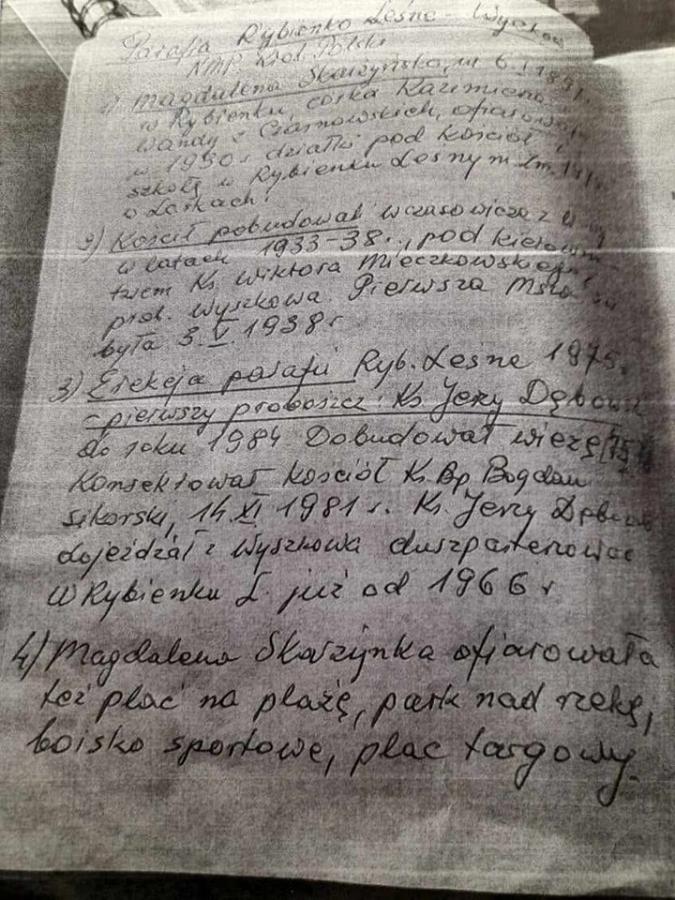 Parafia Rybienko Leśne - Wyszków
NMP Król. Polski
1) Magdalena Skarzyńska, ur. 6.I
w Rybienku, córka Kazimierza
Wandy z Ciarnowskich, ofiarowała
w 1930 r. działki pod kościół i
szkołę w Rybienku Leśnym
o Laskach.
2) Kościł pobudowali wczasowicze z
w latach 1933-38r., pod kierown
twem Ks. Wiktora Mieczkowskiego
prob. Wyszkowa. Pierwsza Msza św
była 3.V.1938 r
3) Erekcja parafii Ryb. Leśne 1975.
- pierwszy proboszcz: Ks. Jerzy Dębows
do roku 1984 Dobudował wieżę
Konsekrował kościół Ks. Bp. Bogdan
Sikorski, 14.XI 1981 r. Ks. Jerzy
dojeżdżał z Wyszkowa duszpasterzować
w Rybienku L. już od 1966 r
4) Magdalena Skarzynka ofiarowała
też płac na plażę, park nad rzeką,
boisko sportowe, plac targowy.